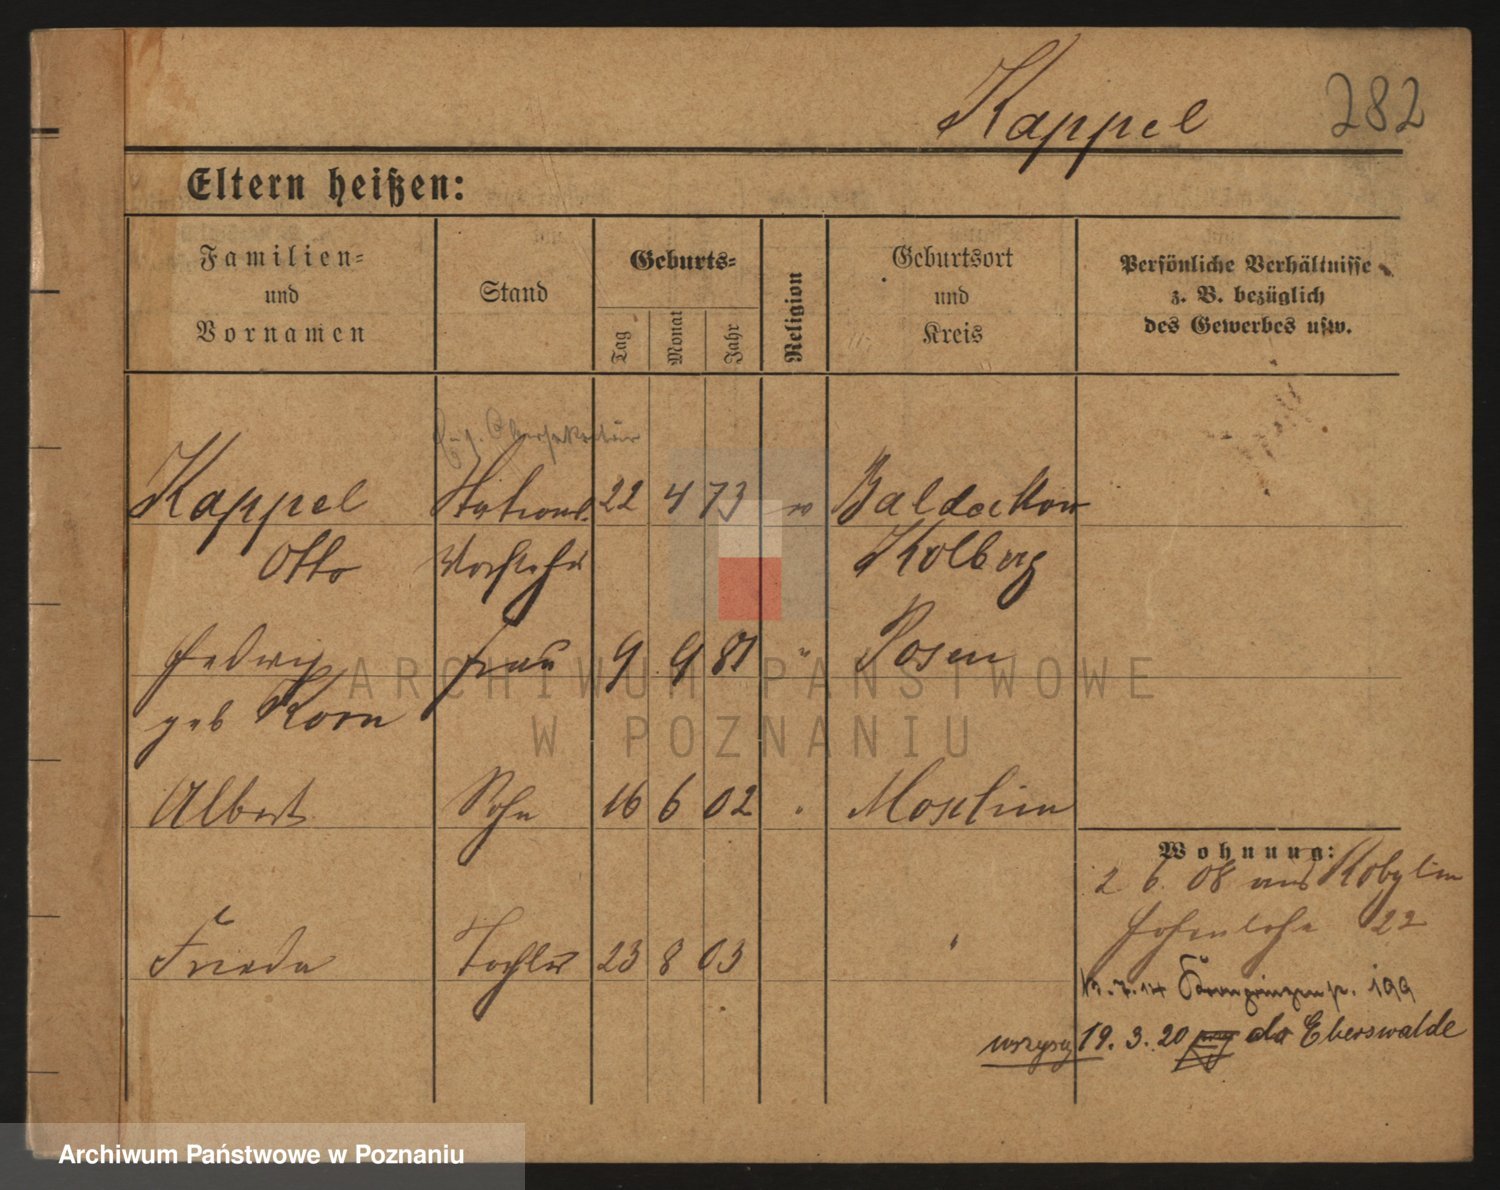 Kappel 282
Eltern heißen:
Familien-
und
Vornamen
Stand
Geburts-
Tag
Monat
Jahr
Religion
Geburtsort
und
Kreis
Persönliche Verhältnisse
z. B. bezüglich
des Gewerbes usw.
Kappel Stations 22 4 73
Otto Vorsteher Kolberg
Hedwig Frau 9 9 81 " Posen
geb Korn
Albert Sohn 16 6 02 "
Wohnung:
2 6. 08 aus Kobylin
Hohenlohe 22
Frieda Tochter 23 8 03 "
Kronprinzenstr. 199
wszyscy 19. 3. 20 do Eberswalde
ARCHIWUM PAŃSTWOWE
W POZNANIU
Archiwum Państwowe w Poznaniu